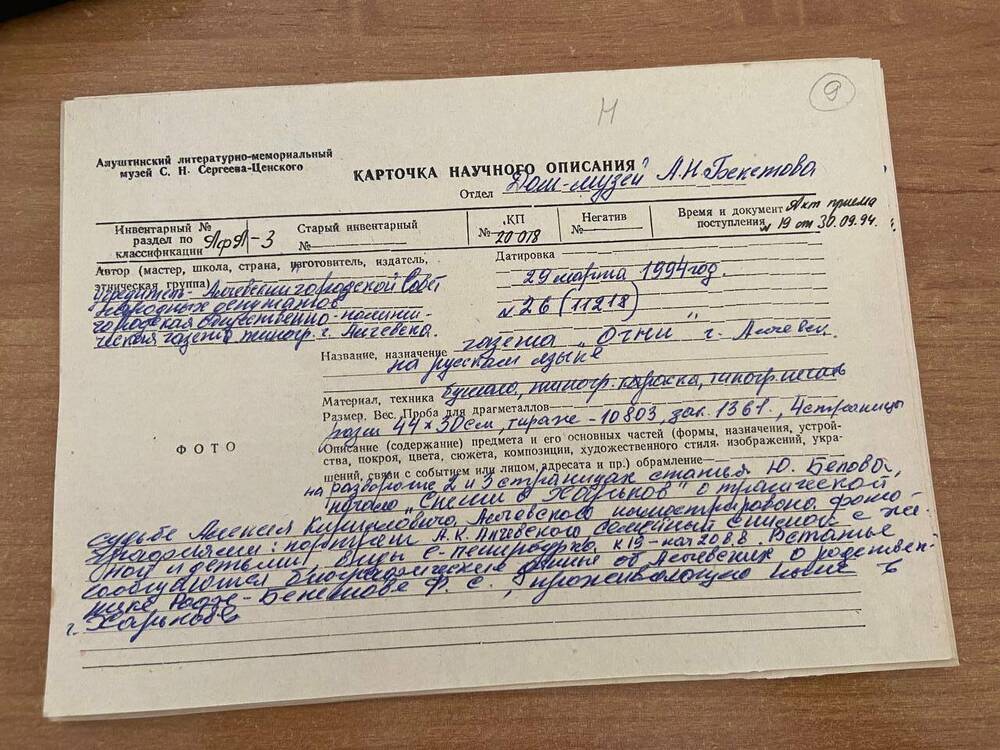 9
Н
Алуштинский литературно-мемориальный
музей С. Н. Сергеева-Ценского
КАРТОЧКА НАУЧНОГО ОПИСАНИЯ
Отдел Дом-музей А.Н. Бекетова
Инвентарный №
раздел по
классификации АфЛ-3
Старый инвентарный
№
КП
№ 20 018
Негатив
№
Время и документ Акт приема
поступления № 19 от 30.09.94г.
Автор (мастер, школа, страна, изготовитель, издатель,
этническая группа)
Учредитель- Алчевский городской Совет
народных депутатов
городская общественно-полити-
ческая газета типогр. г. Алчевска.
Датировка
29 марта 1994 год
№ 26 (11218)
Название, назначение газета "Огни" г. Алчевск.
на русском языке
Материал, техника бумага, типогр. краска, типогр. печать
Размер. Вес. Проба для драгметаллов
разм 44×30 см, тираж - 10803, зак. 1361, 4 страницы
Описание (содержание) предмета и его основных частей (формы, назначения, устрой-
ства, покроя, цвета, сюжета, композиции, художественного стиля. изображений, укра-
шений, связи с событием или лицом, адресата и пр.) обрамление
на развороте 2 и 3 страницах статья Ю. Беловой,
начало "Снегин в Харьков" о трагической
судьбе Алексея Кирилловича Алчевского иллюстрирована фото-
графиями: портрет А.К. Алчевского семейный снимок с же-
ной и детьми, виды С-петербурга к 19 - нач 20 в.в. В статье
сообщаются биографические данные об Алчевских о родствен-
нике Ф. С., проживающего ныне в
г. Харькове
ФОТО